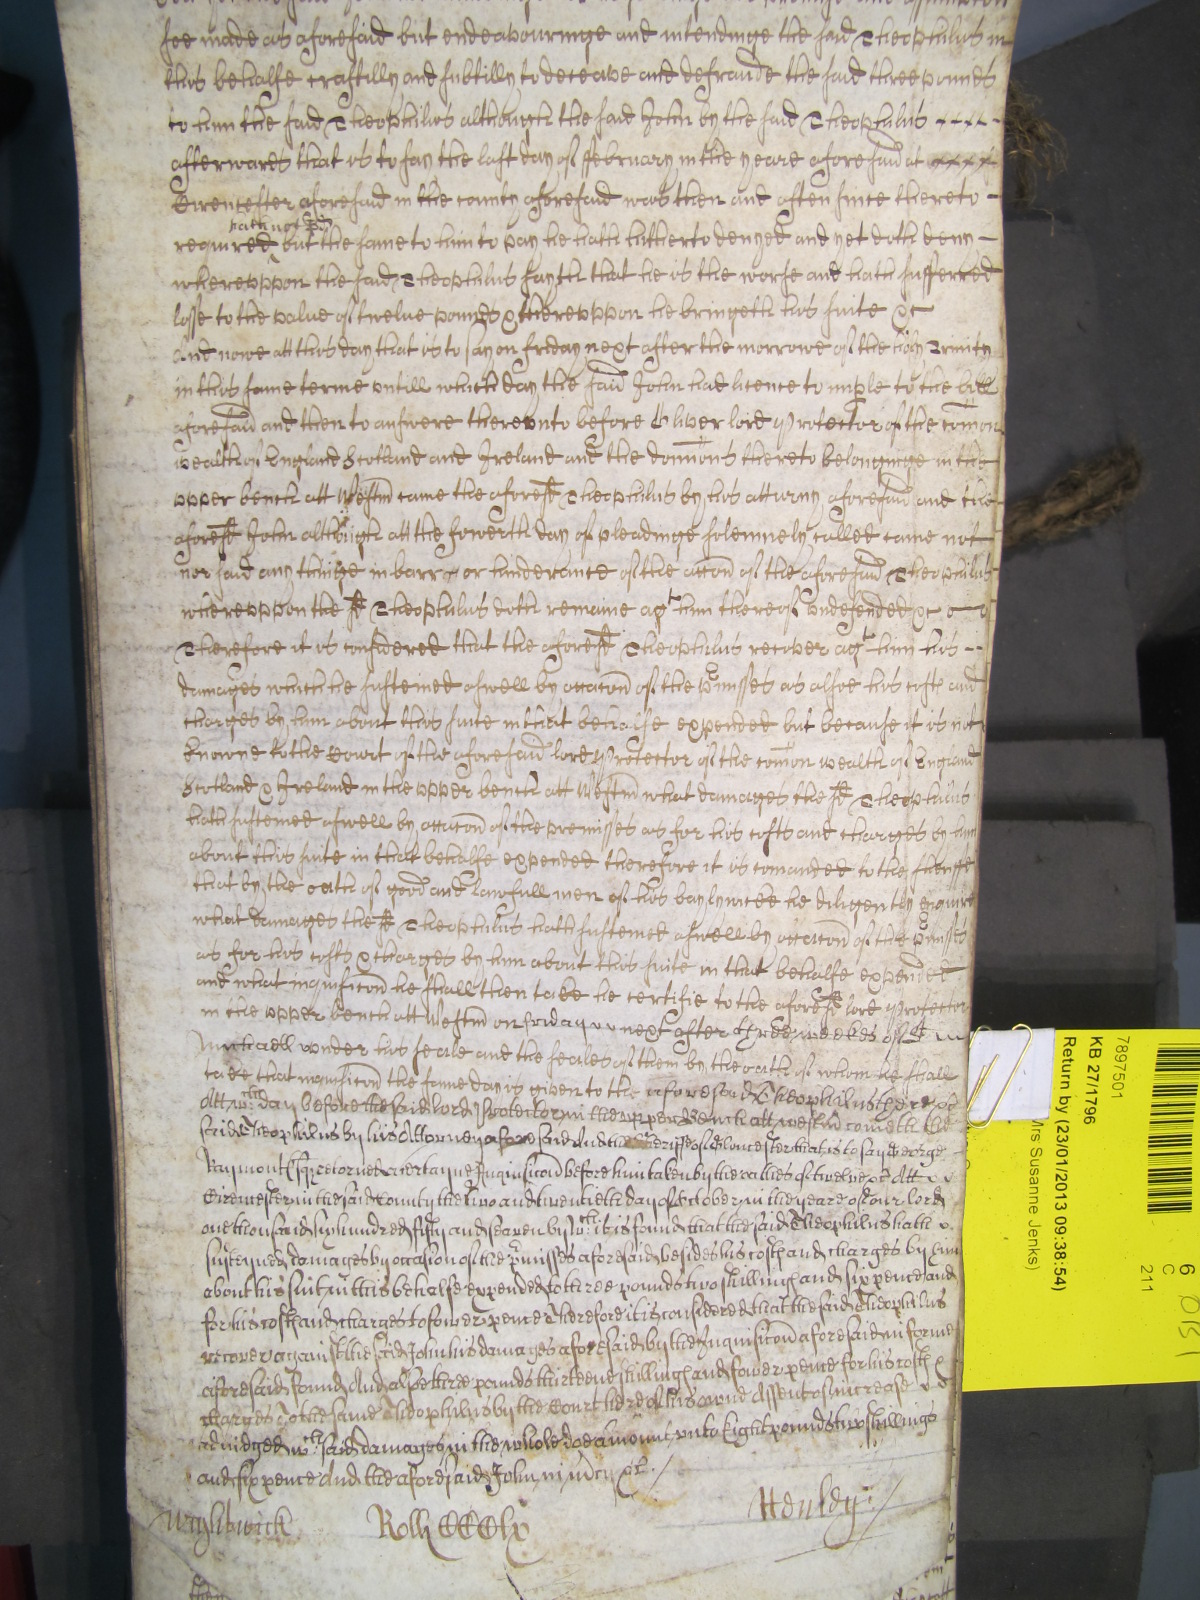 fee made as aforesaid but endeavouringe and intendinge the said Theophilus in
this behalfe craftilly and subtilly to deceave and defraude the said three pounds
to him the said Theophilus although the said John by the said Theophilus
afterwards that is to say the last day of ffebruary in the yeare aforesaid at
Cirencester aforesaid in the county aforesaid was then and often since thereto
hath not pd
required but the same to him to pay he hath hitherto denyed and yet doth deny
whereuppon the said Theophilus sayth that he is the worse and hath sufferred
losse to the value of twelve pounds & thereuppon he bringeth his suite &c
And nowe att this day that is to say on friday next after the morrowe of the holy Trinity
in this same terme untill which day the said John had licence to imple to the bill
aforesaid and then to answere thereunto before Oliver lord Protector of the comon
wealth of England Scotland and Ireland and the domions thereto belonginge in the
upper bench att Westm came the aforesd Theophilus by his atturny aforesaid and the
aforesd John although att the fowerth day of pleadinge solemnely called came not
nor said any thinge in barr or hinderance of the accon of the aforesaid Theophilus
whereuppon the sd Theophilus doth remaine agt him thereof undefended &c
Therefore it is considered that the aforesd Theophilus recover agt him his
damages which he susteined aswell by occacon of the pmisses as alsoe his costs and
charges by him about this suite in that behalfe expended but because it is not
knowne to the Court of the aforesaid lord Protector of the comon wealth of England
Scotland & Ireland in the upper bench att Westm what damages the sd Theophilus
hath susteined aswell by occacon of the premisses as for his costs and charges by him
about this suite in that behalfe expended therefore it is comanded to the sheriffe
that by the oath of good and lawfull men of his baylywicke he diligently enquire
what damages the sd Theophilus hath susteined aswell by occacon of the pmisses
as for his costs & charges by him about this suite in that behalfe expended
and what inquisicon he shall then take he certifie to the aforesd lord Protector
in the upper bench att Westm on friday next after three weekes of St
Michaell under his seale and the seales of them by the oath of whom he shall
take that inquisicon the same day is given to the aforesaid Theophilus there &c
Att wch day before the said lord Protector in the upper Bench att Westm cometh the
said Theophilus by his Attorney aforesaid And the Sheriffe of Gloucester that is to say George
Raymont Esqr retorned a certayne Inquisicon before him taken by the oathes of twelve &c Att
Cirencester in the said County the two and twentieth day of October in the yeare of our lord
one thousand six hundred fifty and seaven by wch it is found that the said Theophilus hath
susteyned damages by occasion of the pmisses aforesaid besides his costs and charges by him
about his suit in this behalfe expended to three pounds two shillings and six pence and
for his costs and charges to fower pence Therefore it is considered that the said Theophilus
recover against the said John his damages aforesaid by the Inquisicon aforesaid in forme
aforesaid found And alsoe three pounds thirteene shillings and fower pence for his costs &
charges to the same Theophilus by the Court here of his owne Assent of increase
adiudged wch said damages in the whole doe amount unto Eight pounds two shillings
and six pence And the aforesaid John in mcy &c
Wightwick Rolls CCCClx Henley
7897501
KB 27/1796
Return by (23/01/2013 09:38:54)
Mrs Susanne Jenks)
6
C
211